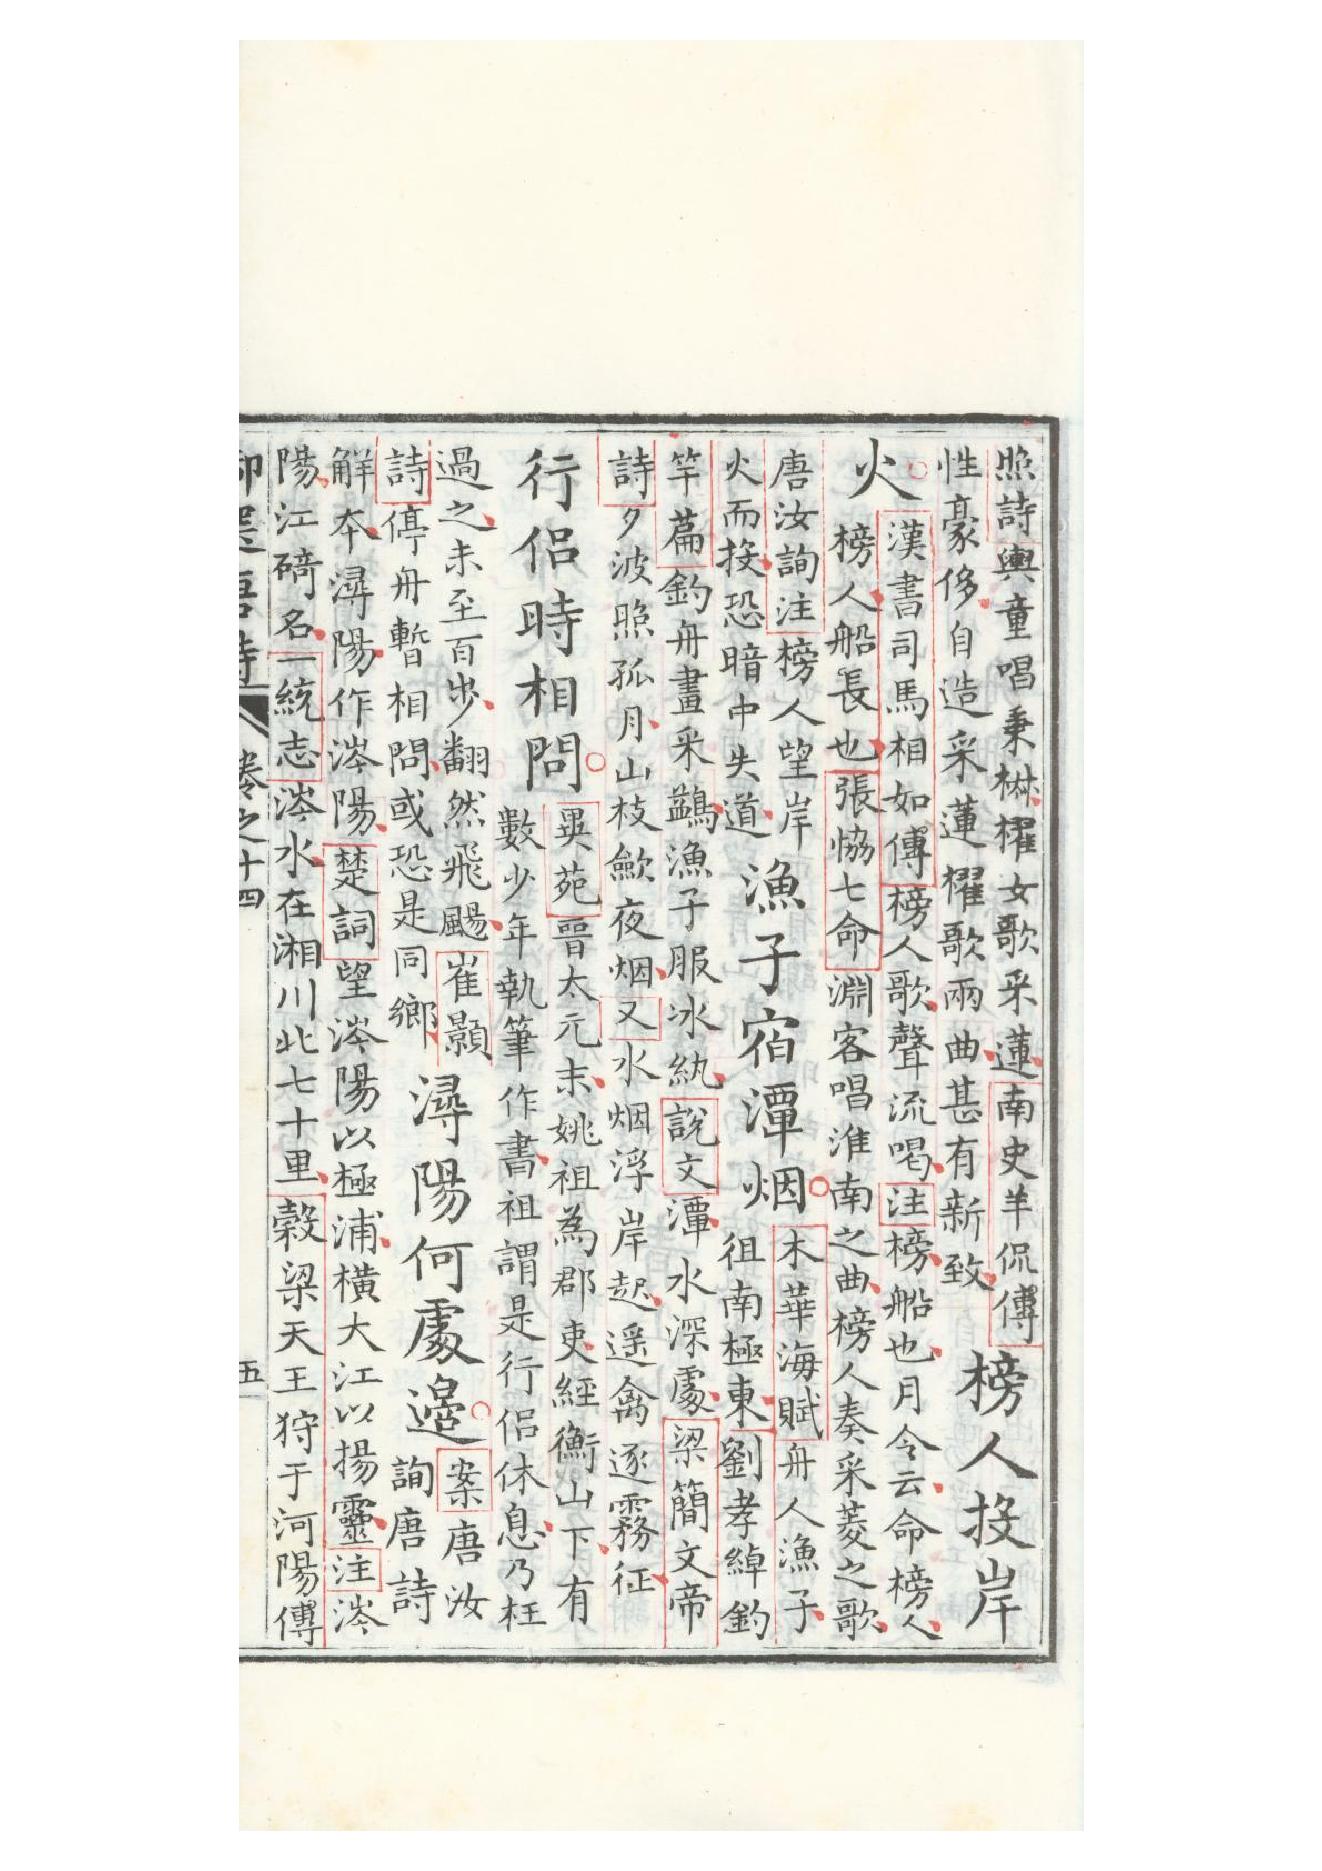 照詩輿童唱秉楙櫂女歌采蓮南史羊侃傳
性豪侈自造采蓮櫂歌兩曲甚有新致
榜人投岸
火
漢書司馬相如傳榜人歌聲流喝注榜船也月令云命榜人
榜人船長也張協七命淵客唱淮南之曲榜人奏采菱之歌
唐汝詢注榜人望岸
火而投恐暗中失道
漁子宿潭烟
木華海賦舟人漁子
徂南極東劉孝綽釣
竿篇釣舟畫采鷁漁子服冰紈說文潭水深處梁簡文帝
詩夕波照孤月山枝歛夜烟又水烟浮岸起遥禽逐霧征
行侣時相問
異苑晉太元末姚祖為郡吏經衡山下有
數少年執筆作書祖謂是行侣休息乃枉
過之未至百步翻然飛颺崔顥
詩停舟暫相問或恐是同鄉
潯陽何處邉
案唐汝
詢唐詩
解本潯陽作涔陽楚詞望涔陽以極浦橫大江以揚靈注涔
陽江碕名一統志涔水在湘川北七十里榖梁天王狩于河陽傳
御選唐詩
卷之十四
五